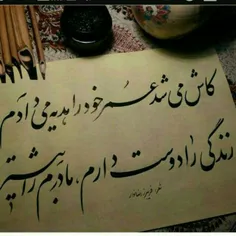 کاش می شد عمر خود را هدیه می دادم
زندگی را دوست دارم، مادرم را بیشتر